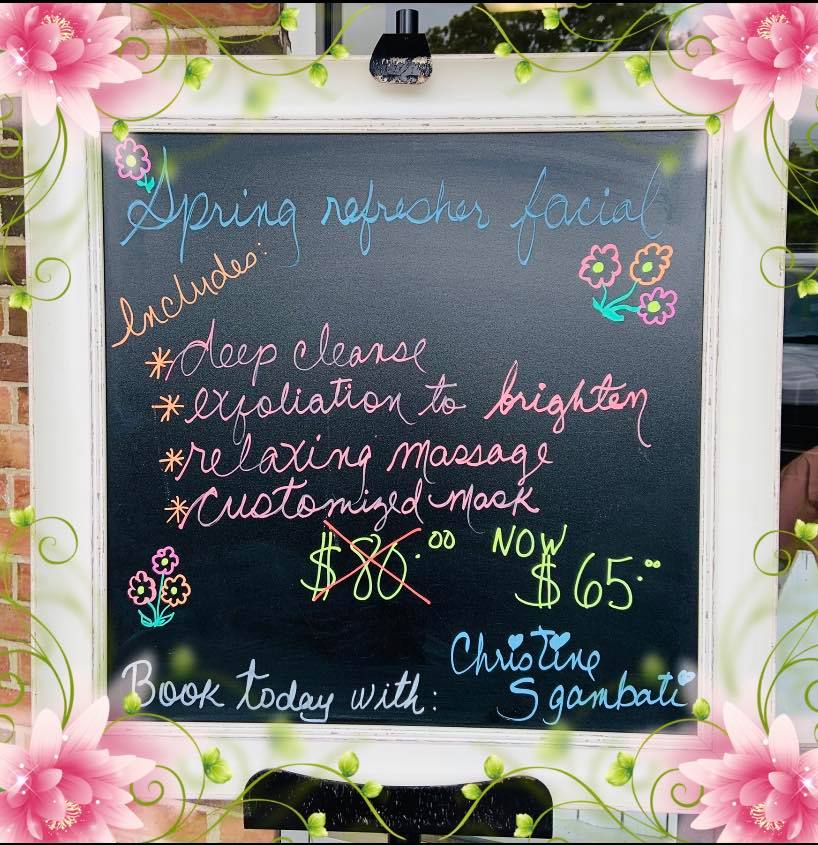 Spring refresher facial
Includes:
* deep cleanse
* exfoliation to brighten
* relaxing massage
* customized mask
$80.00 NOW $65.00
Book today with: Christine
Sgambati